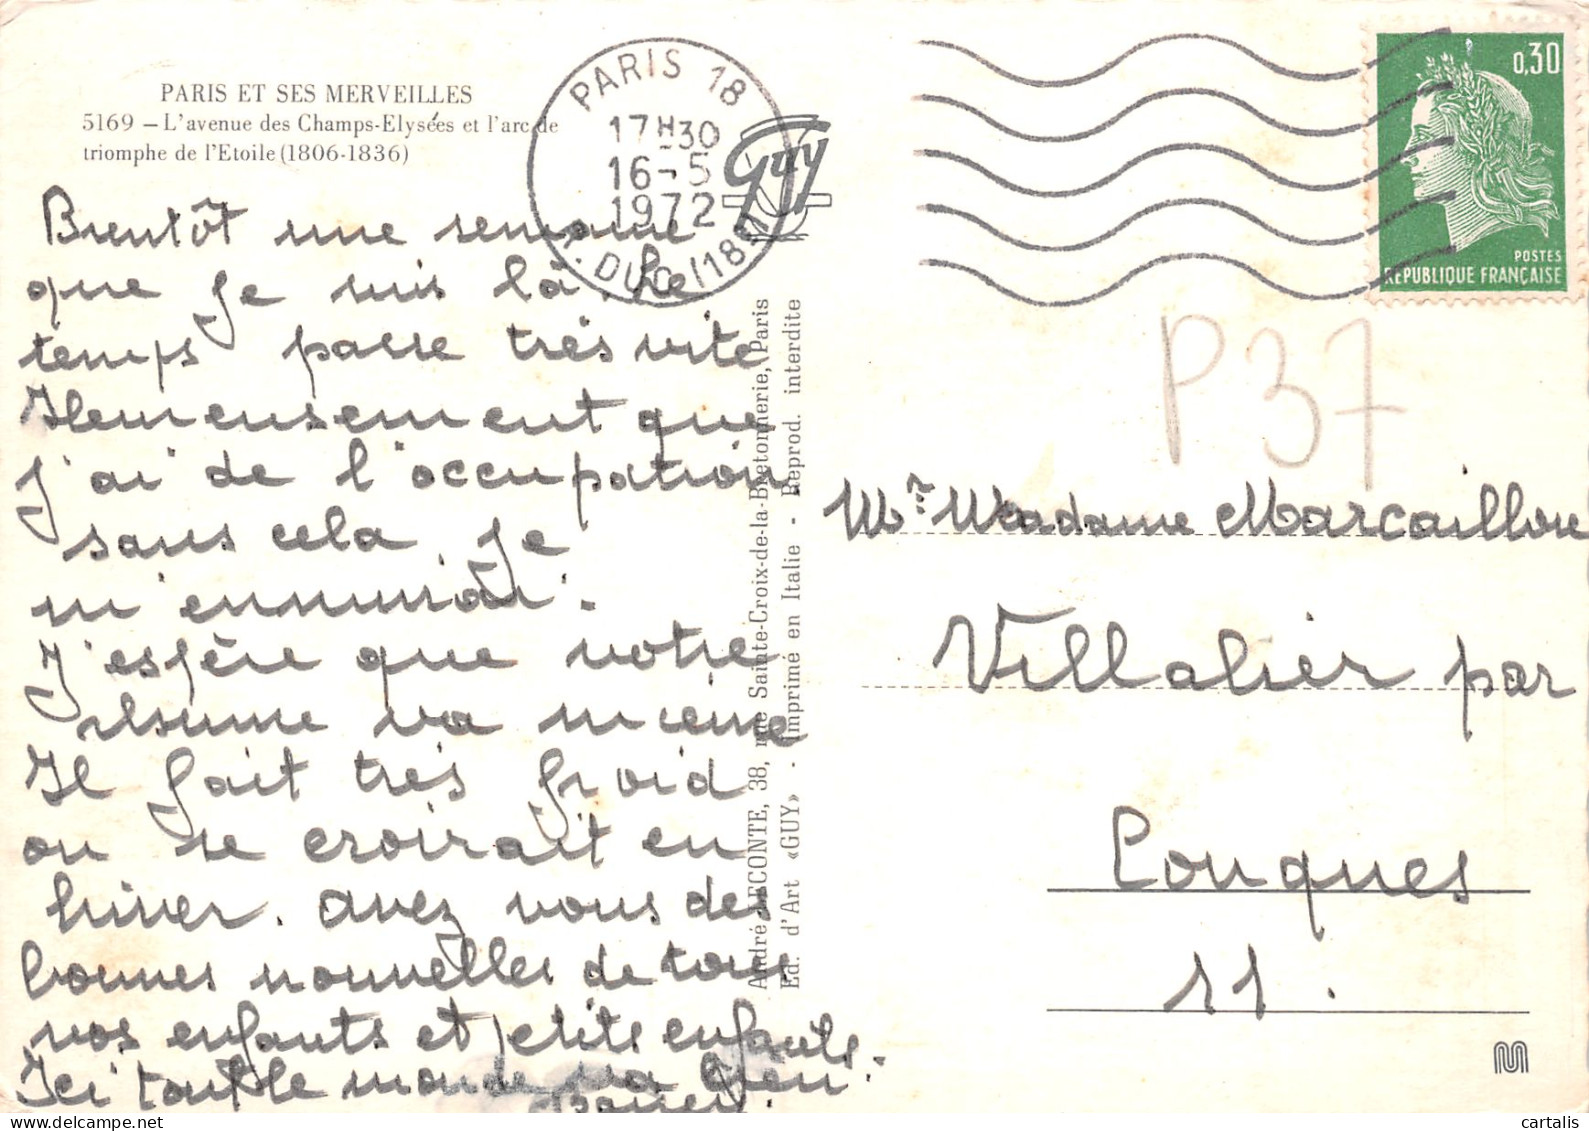 PARIS ET SES MERVEILLES
5169 – L'avenue des Champs-Elysées et l'arc de
triomphe de l'Etoile (1806-1836)
Bientôt une semaine
que je suis là. Le
temps passe très vite
Heureusement que
j'ai de l'occupation
sans cela, je
m'ennuirai.
J'espère que votre
rhume va mieux
Il fait très froid
on se croirait en
hiver. avez vous des
bonnes nouvelles de tous
vos enfants et petits enfants.
Ici tout le monde va bien.
Baisers.
PARIS 18
17H30
16-5
1972
R. DUC (18e)
Guy
André LECONTE, 38, rue Sainte-Croix-de-la-Bretonnerie, Paris
Ed. d'Art «GUY» - Imprimé en Italie - Reprod. interdite
0,30
POSTES
REPUBLIQUE FRANÇAISE
P37
Mr Madame Marcaillou
Villalier par
Conques
11.
M
cartalis